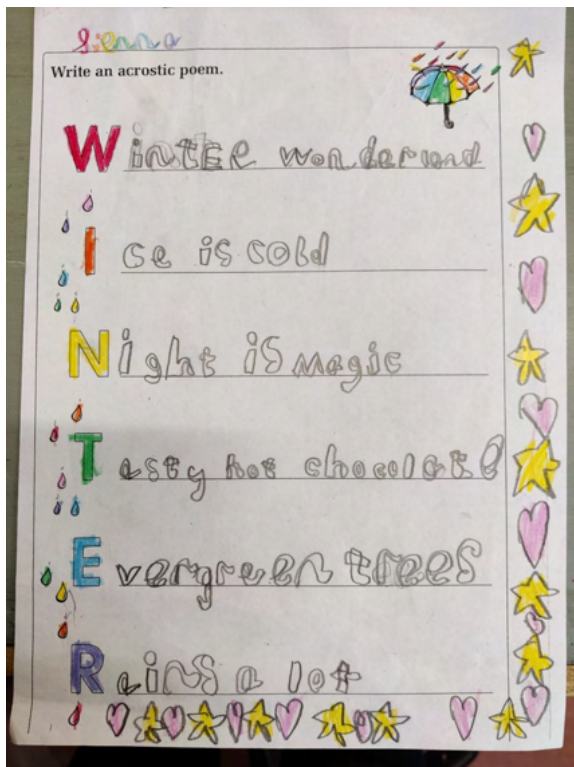 Sienna
Write an acrostic poem.
WintER wonderland
Ice is cold
Night is Magic
Tasty hot chocolate
Evergreen trees
Rains a lot